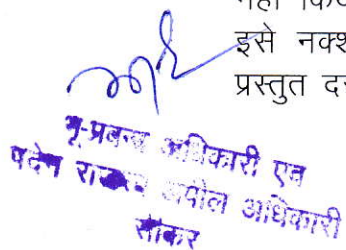 इसे नक्श
प्रस्तुत द
भू-प्रबन्ध अधिकारी एव
पदेन राजस्व अपील अधिकारी
सीकर